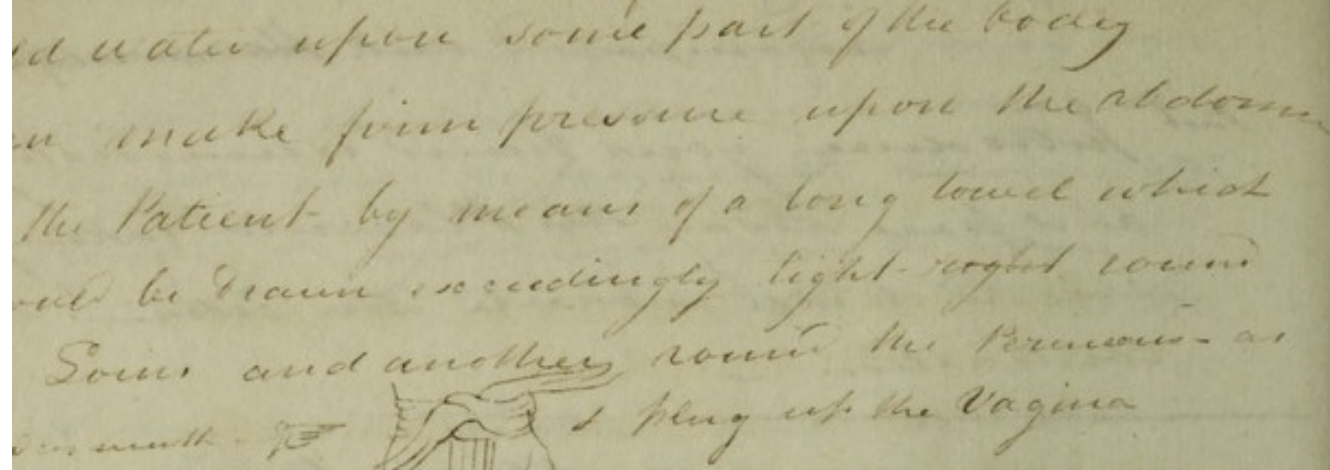 ed water upon some part of the body
en make firm pressure upon the abdomen
the Patient by means of a long towel which
ould be drawn exceedingly tight right round
Loins and another round the as
& plug up the Vagina